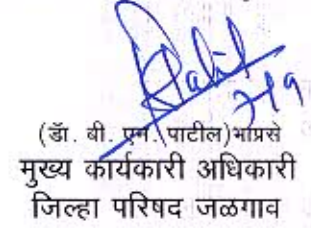 Patil
7/9
(डॅा. बी. एन. पाटील)भाप्रसे
मुख्य कार्यकारी अधिकारी
जिल्हा परिषद जळगाव